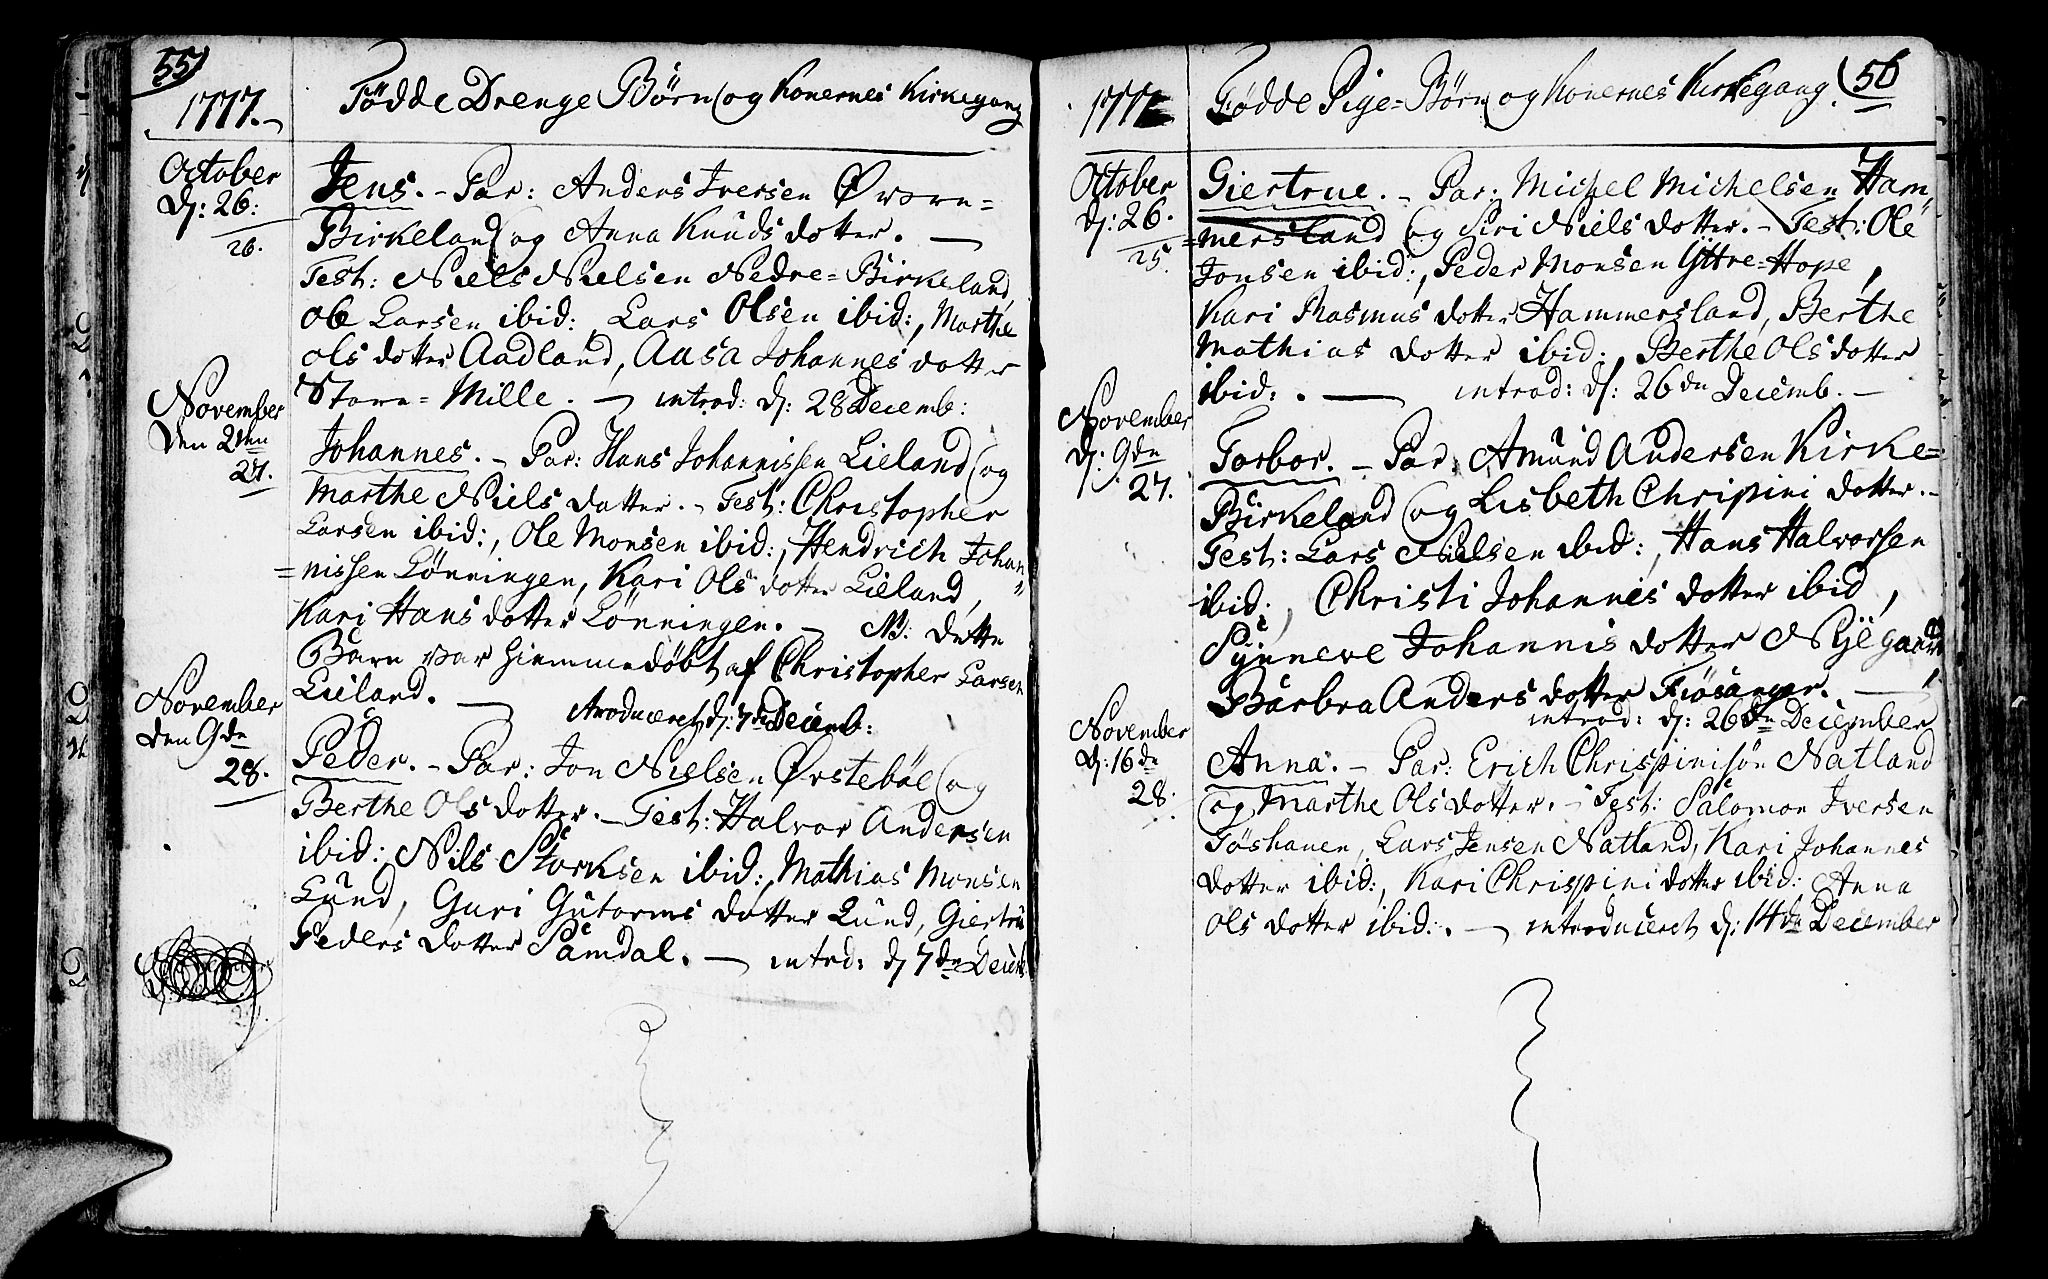 55)
1777.
Födde Drenge Börn og Konernes Kirkegang
October
Dj: 26:
26.
Jens. - Par: Anders Iversen Øvre=
Birkeland og Anna Knuds dotter. —
Test: Niels Nielsen Nedre=Birkeland,
Ole Larsen ibid:, Lars Olsen ibid:, Marthe
Ols dotter Aadland, Aasa Johannes dotter
Store=Mille. — introd: dj: 28 Decemb:
November
Den 2den
27.
Johannes. - Par: Hans Johannissen Lieland og
Marthe Niels dotter. - Test: Christopher
Larsen ibid:, Ole Monsen ibid:, Hendrich Johan
=nissen Lönningen, Kari Ols dotter Lieland,
Kari Hans dotter Lönningen. — NB: Dette
Barn var hiemmedöbt af Christopher Larsen
Lieland. — introduceret dj: 7de Decemb:
November
den 9de
28.
Peder. - Par: Jon Nielsen Øvsteböe og
Berthe Ols dotter. - Test: Halvor Andersen
ibid: Nils Storksen ibid:, Mathias Monsen
Lund, Guri Gutorms dotter Lund, Giertru
Peders dotter Samdal. — introd: dj 7de Decemb
(56
1777
Födde Pige=Börn og Konernes Kirkegang.
October
dj: 26.
25.
Giertrue. - Par: Michel Michelsen Ham
=mersland og Siri Niels dotter. - Test: Ole
Jonsen ibid:, Peder Monsen Yttre=Hope,
Kari Rasmus dotter Hammersland, Berthe
Mathias dotter ibid:, Berthe Ols dotter
ibid:. — introd: dj: 26de Decemb. —
November
Dj: 9de
27.
Torbor. - Par: Amund Andersen Kirke=
Birkeland og Lisbeth Chrispini dotter. -
Test: Lars Nielsen ibid:, Hans Halvorsen
ibid:, Christi Johannis dotter ibid,
Synneve Johannis dotter Nyegaard,
Barbra Anders dotter Fiösanger. —
introd: dj: 26de December
November
Dj: 16de
28.
Anna. - Par: Erich Chrispinisön Natland
og Marthe Ols dotter. - Test: Salomon Iversen
Töshauen, Lars Jensen Natland, Kari Johannes
dotter ibid:, Kari Chrispini dotter ibid: Anna
Ols dotter ibid:. — introduceret dj: 14de December